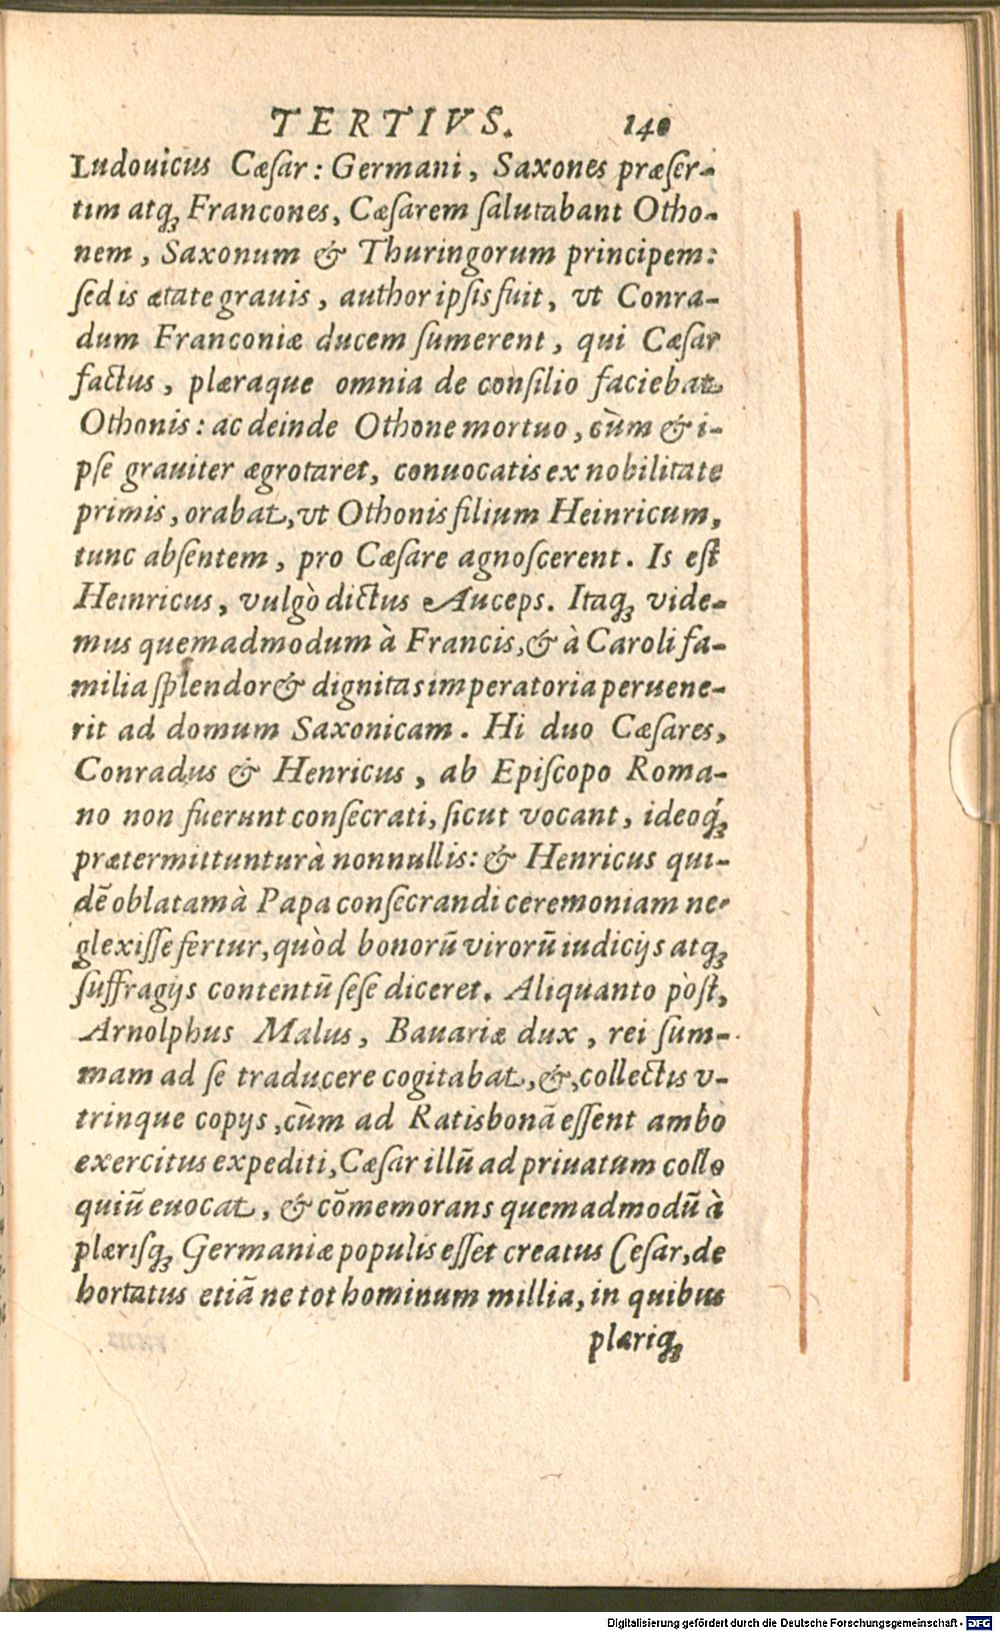 TERTIVS. 140
Ludouicus Cæſar: Germani, Saxones præſer-
tim atq́ꝫ Francones, Cæſarem ſalutabant Otho-
nem, Saxonum & Thuringorum principem:
ſed is ætate grauis, author ipſis fuit, vt Conra-
dum Franconiæ ducem ſumerent, qui Cæſar
factus, plæraque omnia de conſilio faciebat
Othonis: ac deinde Othone mortuo, cùm & i-
pſe grauiter ægrotaret, conuocatis ex nobilitate
primis, orabat, vt Othonis filium Heinricum,
tunc abſentem, pro Cæſare agnoſcerent. Is eſt
Heinricus, vulgò dictus Auceps. Itaqꝫ vide-
mus quemadmodum à Francis, & à Caroli fa-
milia ſplendor & dignitas imperatoria peruene-
rit ad domum Saxonicam. Hi duo Cæſares,
Conradus & Henricus, ab Epiſcopo Roma-
no non fuerunt conſecrati, ſicut vocant, ideoq́ꝫ
prætermittuntur à nonnullis: & Henricus qui-
dē oblatam à Papa conſecrandi ceremoniam ne-
glexiſſe fertur, quòd bonorū virorū iudicijs atqꝫ
ſuffragijs contentū ſeſe diceret. Aliquanto pòſt,
Arnolphus Malus, Bauariæ dux, rei ſum-
mam ad ſe traducere cogitabat, &, collectis v-
trinque copijs, cùm ad Ratisbonā eſſent ambo
exercitus expediti, Cæſar illū ad priuatum collo
quiū euocat, & cōmemorans quemadmodū à
plæriſqꝫ Germaniæ populis eſſet creatus Ceſar, de
hortatus etiā ne tot hominum millia, in quibus
plæriqꝫ
Digitalisierung gefördert durch die Deutsche Forschungsgemeinschaft - DFG